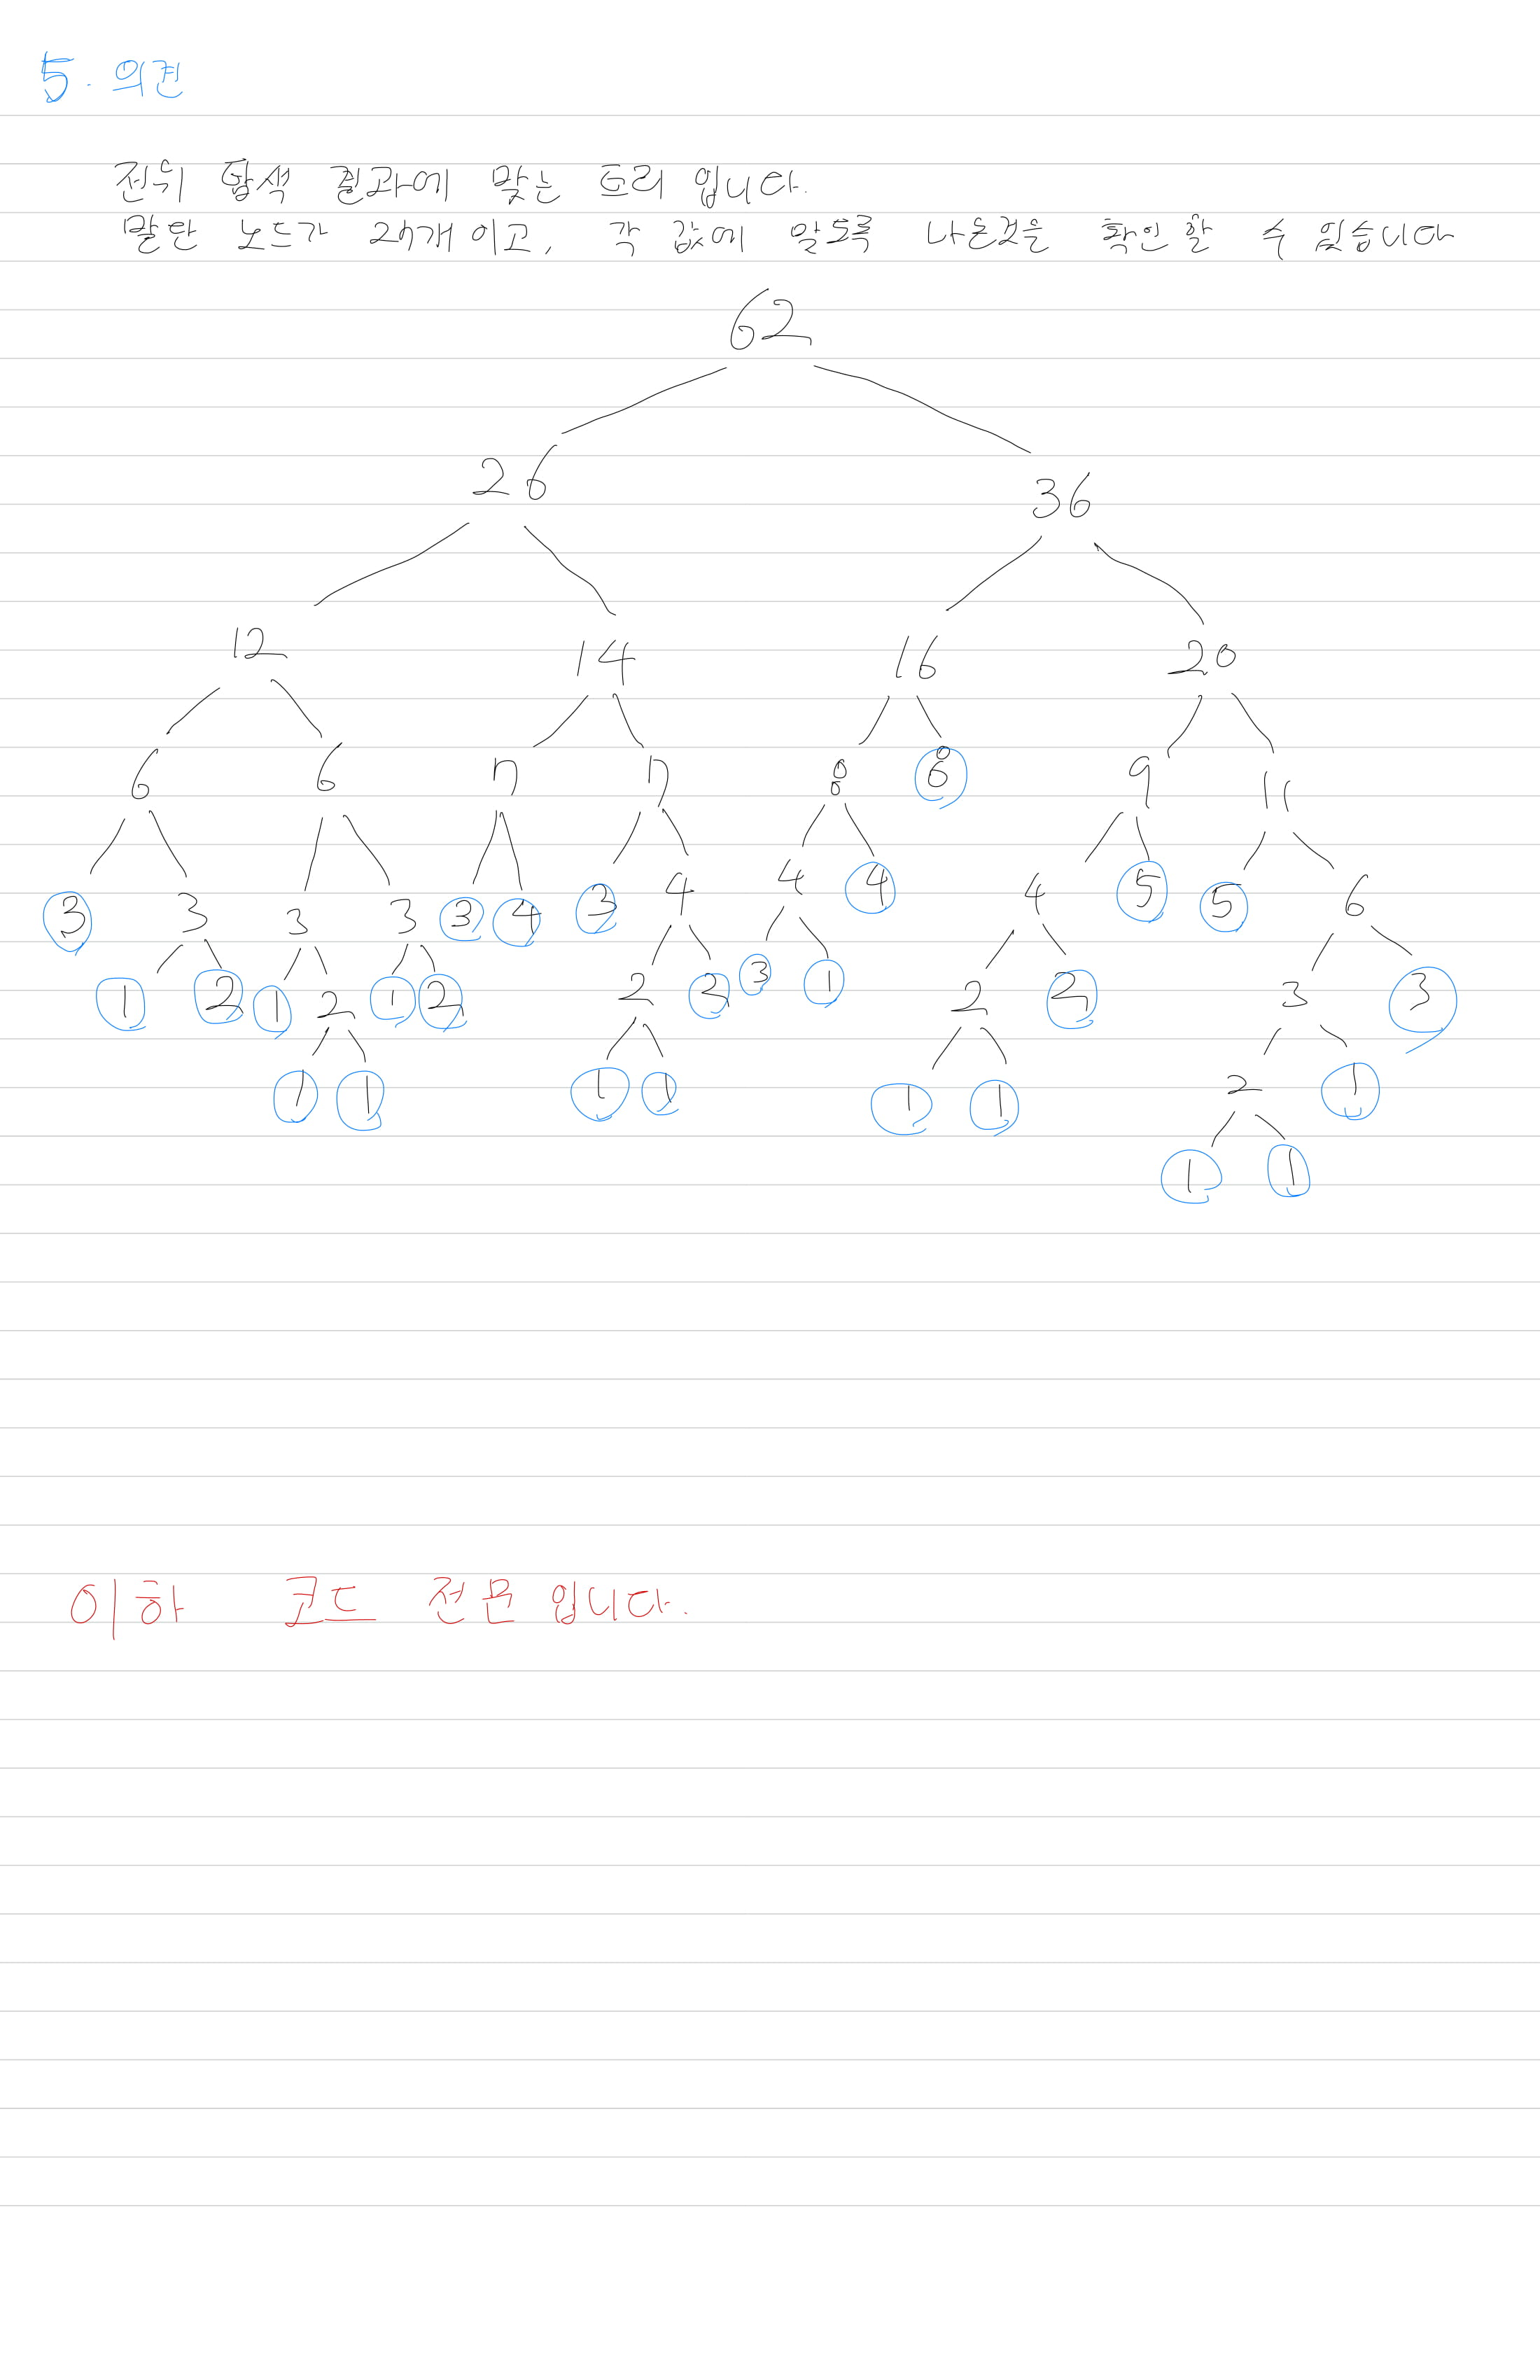 5. 의견
전위 탐색 결과에 맞는 트리 입니다.
말단 노드가 27개 이고, 각 값에 알도록 나온것을 확인 할 수 있습니다
62
26 36
12 14 16 20
6 6 7 7 8 8 9 11
3 3 3 3 3 4 3 4 4 4 4 5 5 6
1 2 1 2 1 2 2 2 3 1 2 2 3 3
1 1 1 1 1 1 2 1
1 1
이하 코드 전문 입니다.